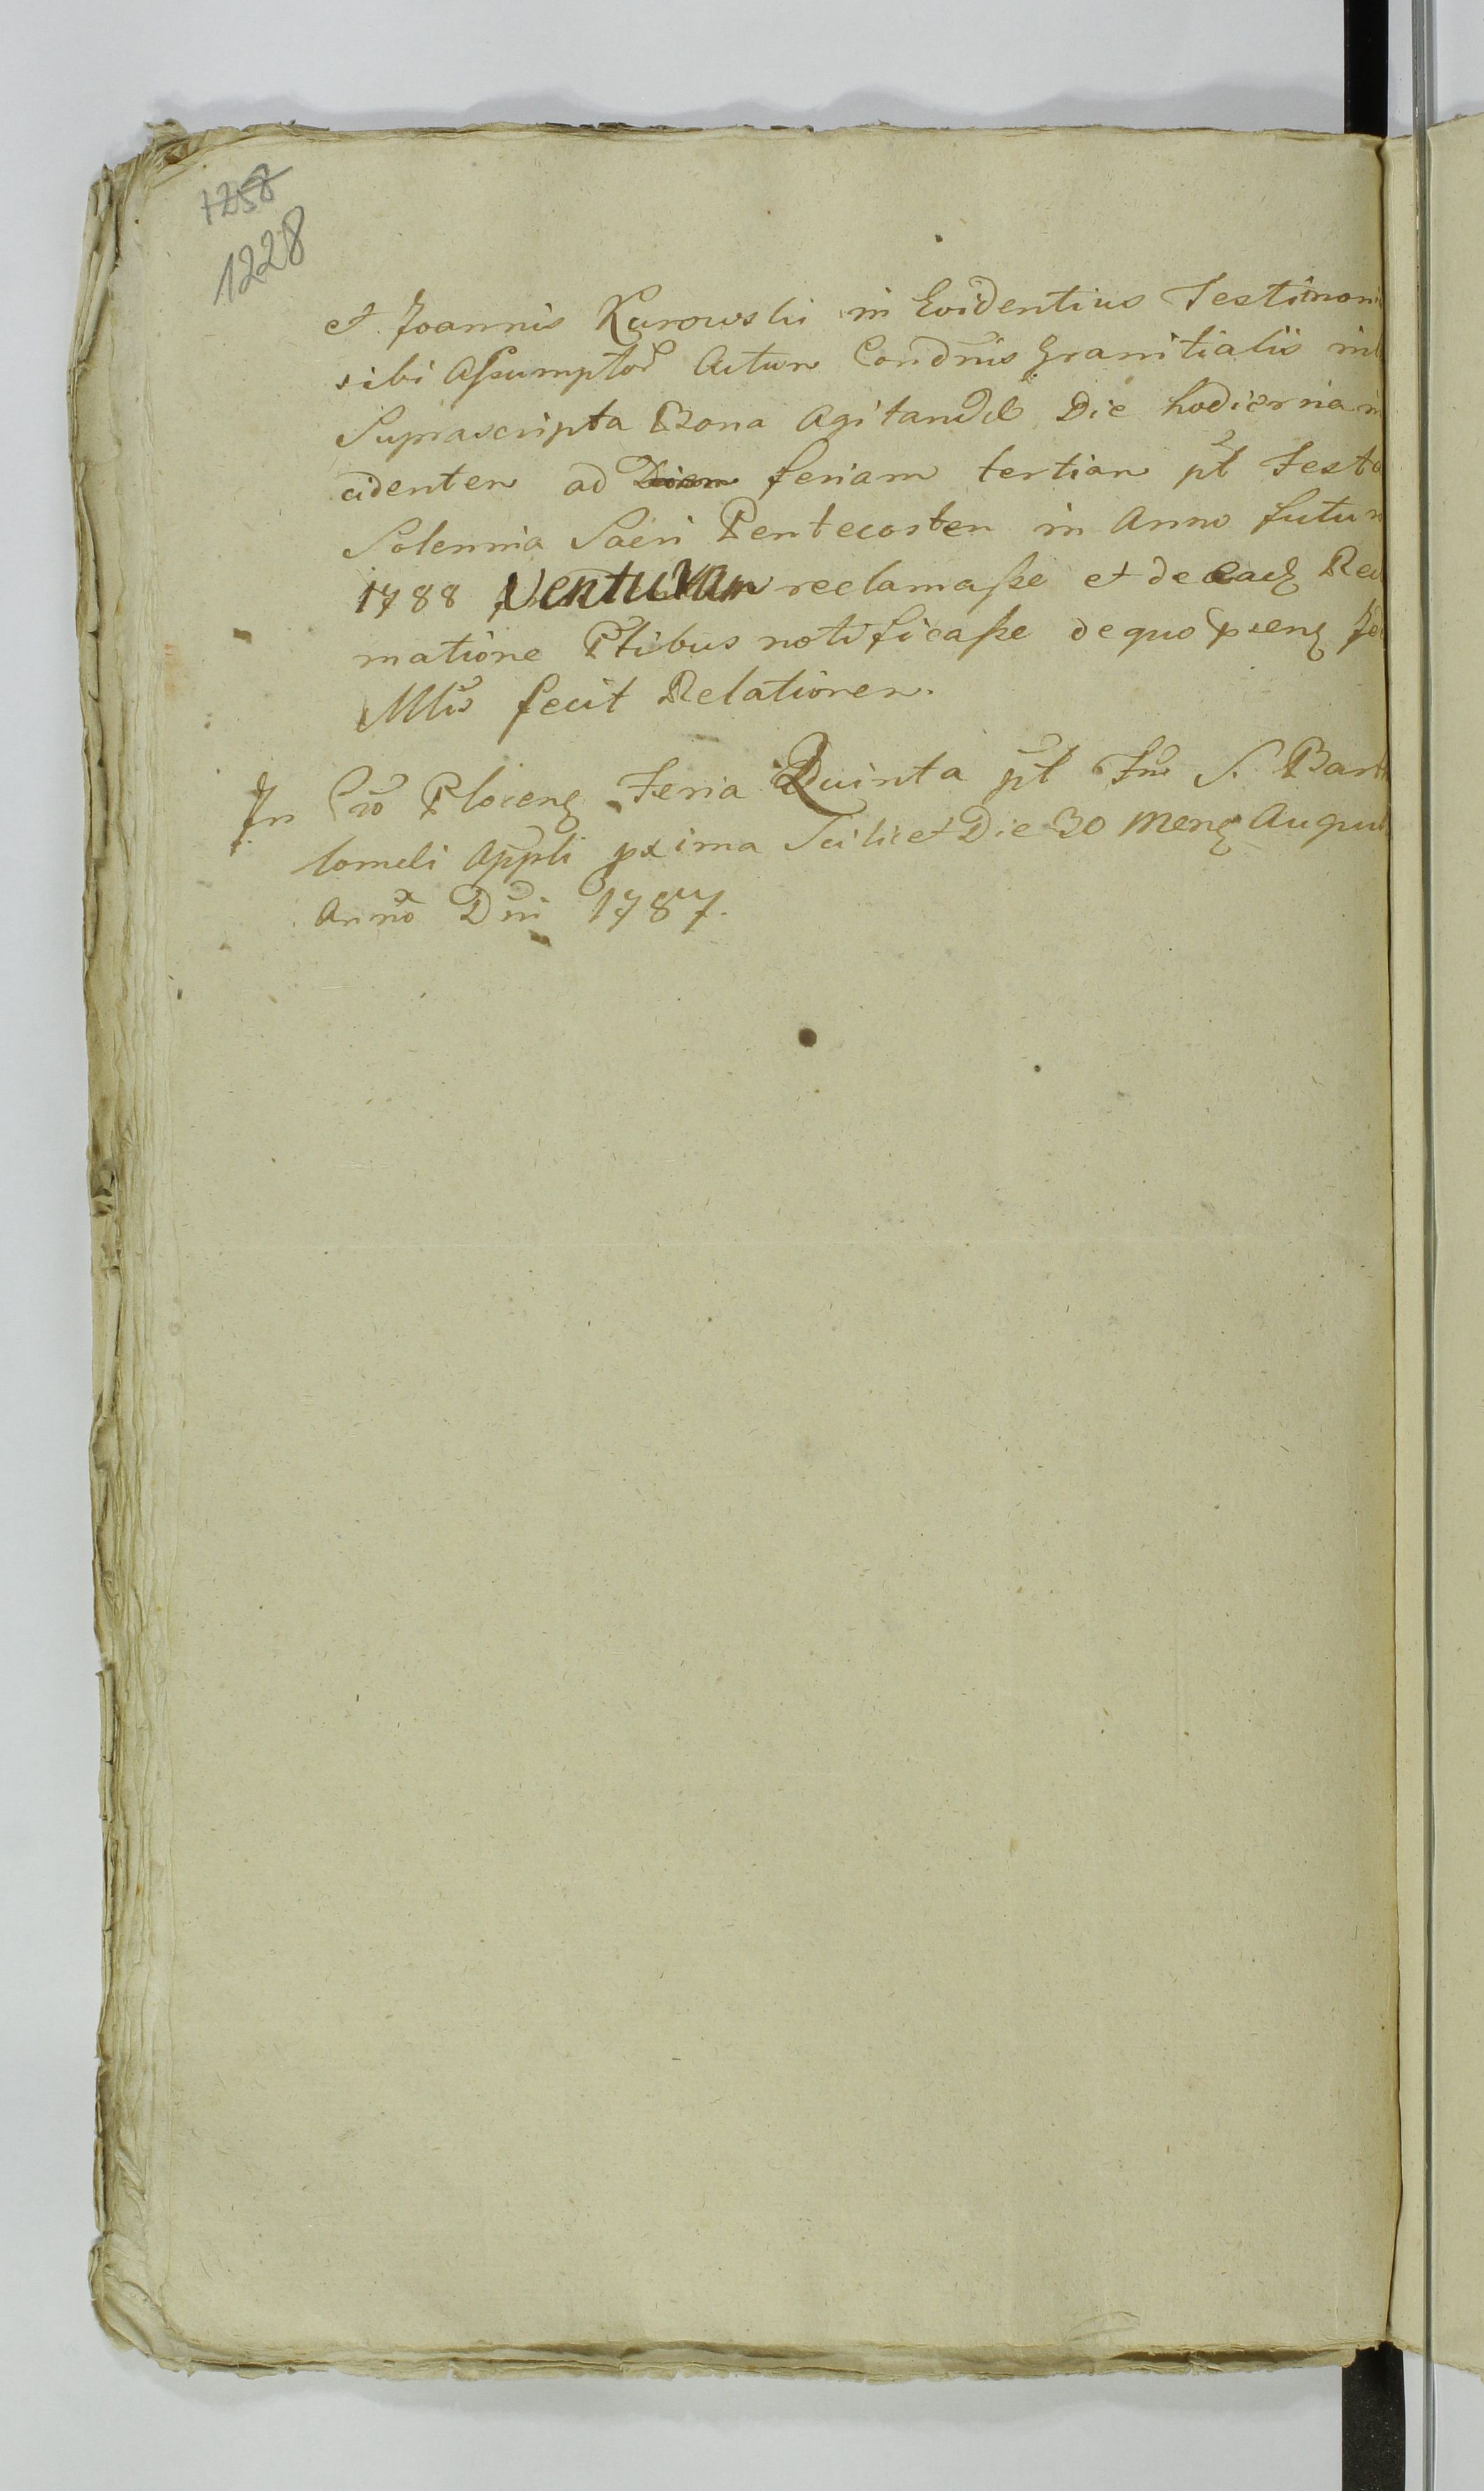 1258
1228
et Joannis Kurowski in Evidentius Testimoni
sibi Assumptor Actum Condnis Granitialis int
Suprascripta Bona Agitand Die hodierna in
cidentem ad Diem feriam tertiam pt Festa
Solennia Sacri Pentecosten in Anno futur
1788 Venturam reclamasse et de Rec
matione Ptibus notificasse de quo
Mlis fecit Relationem.
In Cro Plocens Feria Quinta pt Ftm S. Barth
lomei Appli pxima Scilicet Die 30 Mens Augus
Anno Dni 1787.